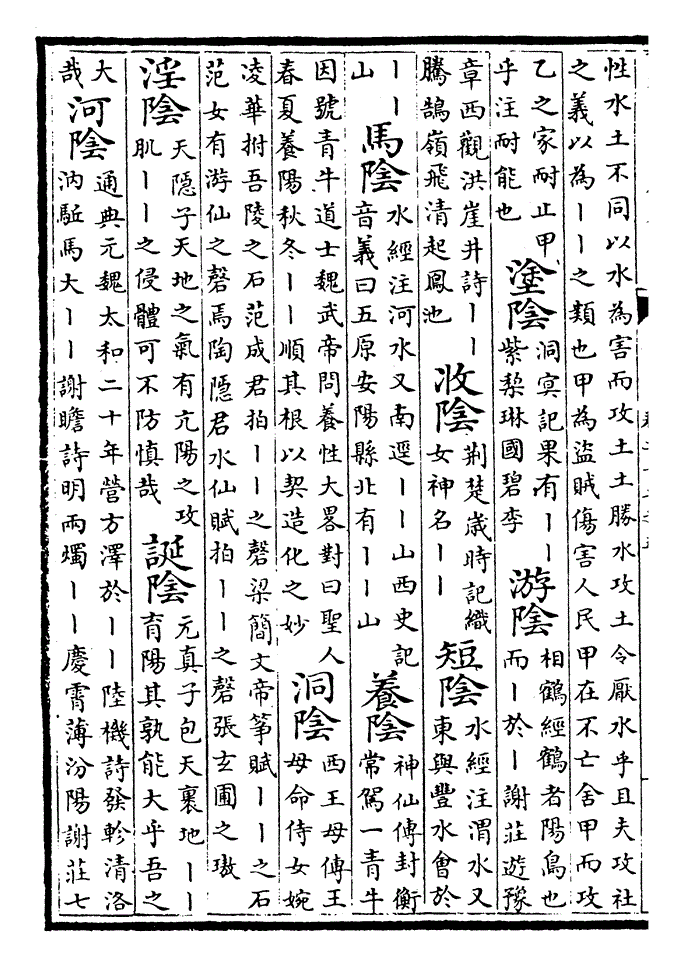 性水土不同以水為害而攻土土勝水攻土令厭水乎且夫攻社
之義以為丨丨之類也甲為盜賊傷害人民甲在不亡舍甲而攻
乙之家耐止甲
乎注耐能也
塗陰
洞冥記果有丨丨
紫棃琳國碧李
游陰
相鶴經鶴者陽鳥也
而丨於丨謝莊遊豫
章西觀洪崖井詩丨丨
騰鵠嶺飛清起鳳池
收陰
荆楚歲時記織
女神名丨丨
短陰
水經注渭水又
東與豐水會於
丨丨
山
馬陰
水經注河水又南逕丨丨山西史記
音義曰五原安陽縣北有丨丨山
養陰
神仙傳封衡
常駕一青牛
因號青牛道士魏武帝問養性大畧對曰聖人
春夏養陽秋冬丨丨順其根以契造化之妙
洞陰
西王母傳王
母命侍女婉
凌華拊吾陵之石范成君拍丨丨之磬梁簡文帝箏賦丨丨之石
范女有游仙之磬焉陶隱君水仙賦拍丨丨之磬張玄圃之璈
淫陰
天隱子天地之氣有亢陽之攻
肌丨丨之侵體可不防慎哉
誕陰
元真子包天裹地丨丨
育陽其孰能大乎吾之
大
哉
河陰
通典元魏太和二十年營方澤於丨丨陸機詩發軫清洛
汭駈馬大丨丨謝瞻詩明兩燭丨丨慶霄薄汾陽謝莊七